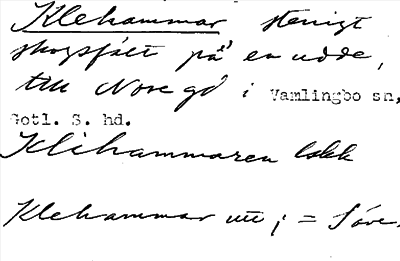 Klehammar stenigt
skogsfält på en udde,
till Nore gd i Vamlingbo sn,
Gotl. S. hd.
Klihammaren lokk
Klehammar utt ; = Föve.